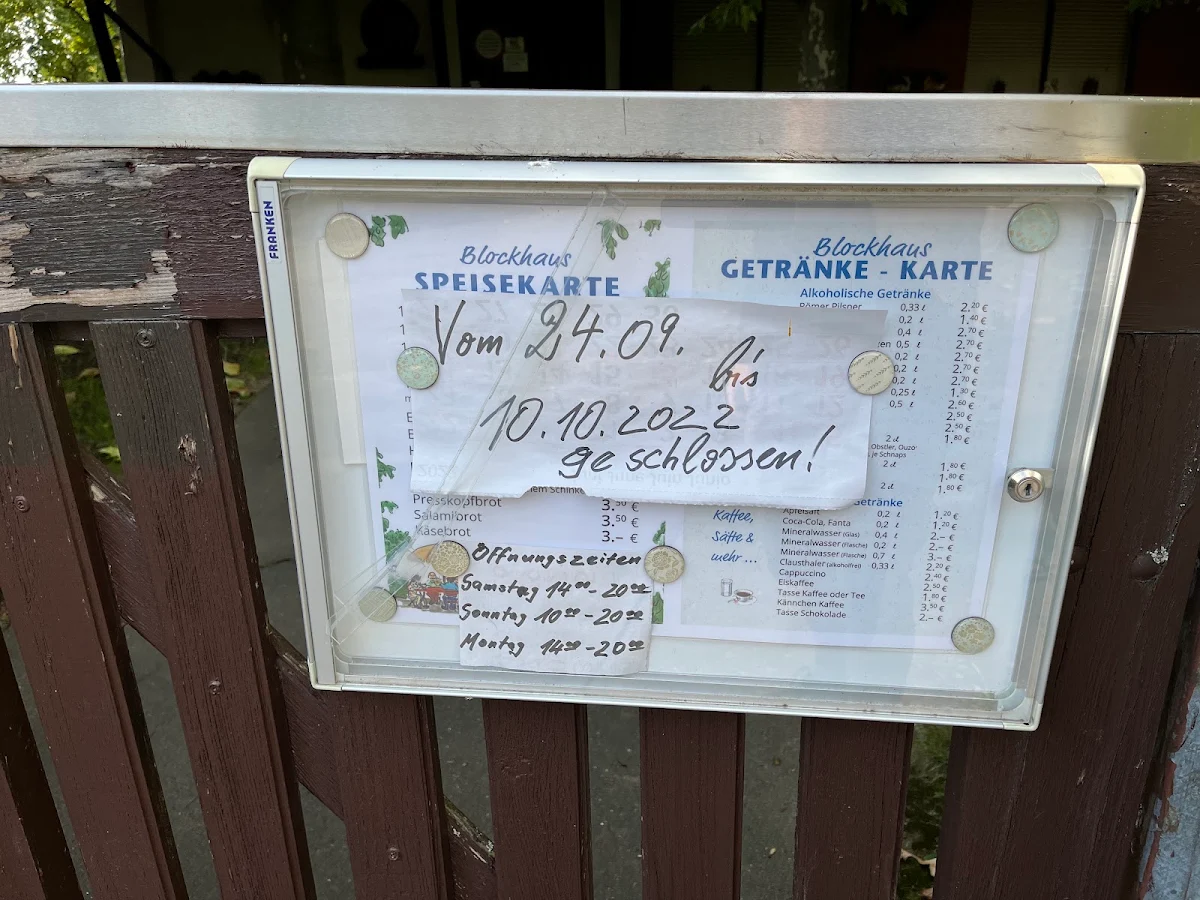 FRANKEN
Blockhaus
SPEISEKARTE
Vom 24.09.
bis
10.10.2022
geschlossen!
Presskopfbrot 3.50 €
Salamibrot 3.50 €
Käsebrot 3.– €
Öffnungszeiten
Samstag 14 00 - 20 00
Sonntag 10 00 - 20 00
Montag 14 00 - 20 00
Blockhaus
GETRÄNKE - KARTE
Alkoholische Getränke
Römer Pilsner 0,33 ℓ 2.20 €
0,2 ℓ 1.40 €
0,4 ℓ 2.70 €
0,5 ℓ 2.70 €
0,2 ℓ 2.70 €
0,2 ℓ 2.70 €
0,2 ℓ 2.70 €
0,25 ℓ 1.30 €
0,5 ℓ 2.60 €
2.50 €
2.50 €
2 cl 1.80 €
Obstler, Ouzo
je Schnaps
2 cl 1.80 €
1.80 €
2 cl 1.80 €
Getränke
Kaffee,
Säfte &
mehr...
Apfelsaft 0,2 ℓ 1.20 €
Coca-Cola, Fanta 0,2 ℓ 1.20 €
Mineralwasser (Glas) 0,4 ℓ 2.– €
Mineralwasser (Flasche) 0,2 ℓ 2.– €
Mineralwasser (Flasche) 0,7 ℓ 3.– €
Clausthaler (alkoholfrei) 0,33 ℓ 2.20 €
Cappuccino 2.40 €
Eiskaffee 2.50 €
Tasse Kaffee oder Tee 1.80 €
Kännchen Kaffee 3.50 €
Tasse Schokolade 2.– €